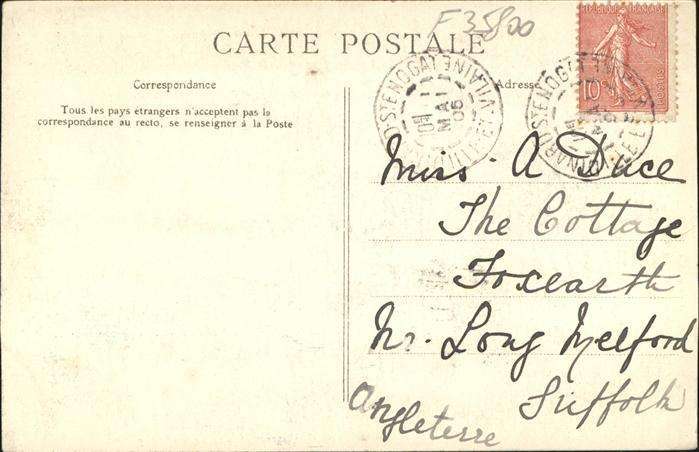 F 35800
CARTE POSTALE
Correspondance
Adresse
Tous les pays étrangers n'acceptent pas la
correspondance au recto, se renseigner à la Poste
10
MAI
05
ILLE ET VILAINE
Miss A Duce
The Cottage
Foxearth
Nr. Long Melford
Suffolk
Angleterre